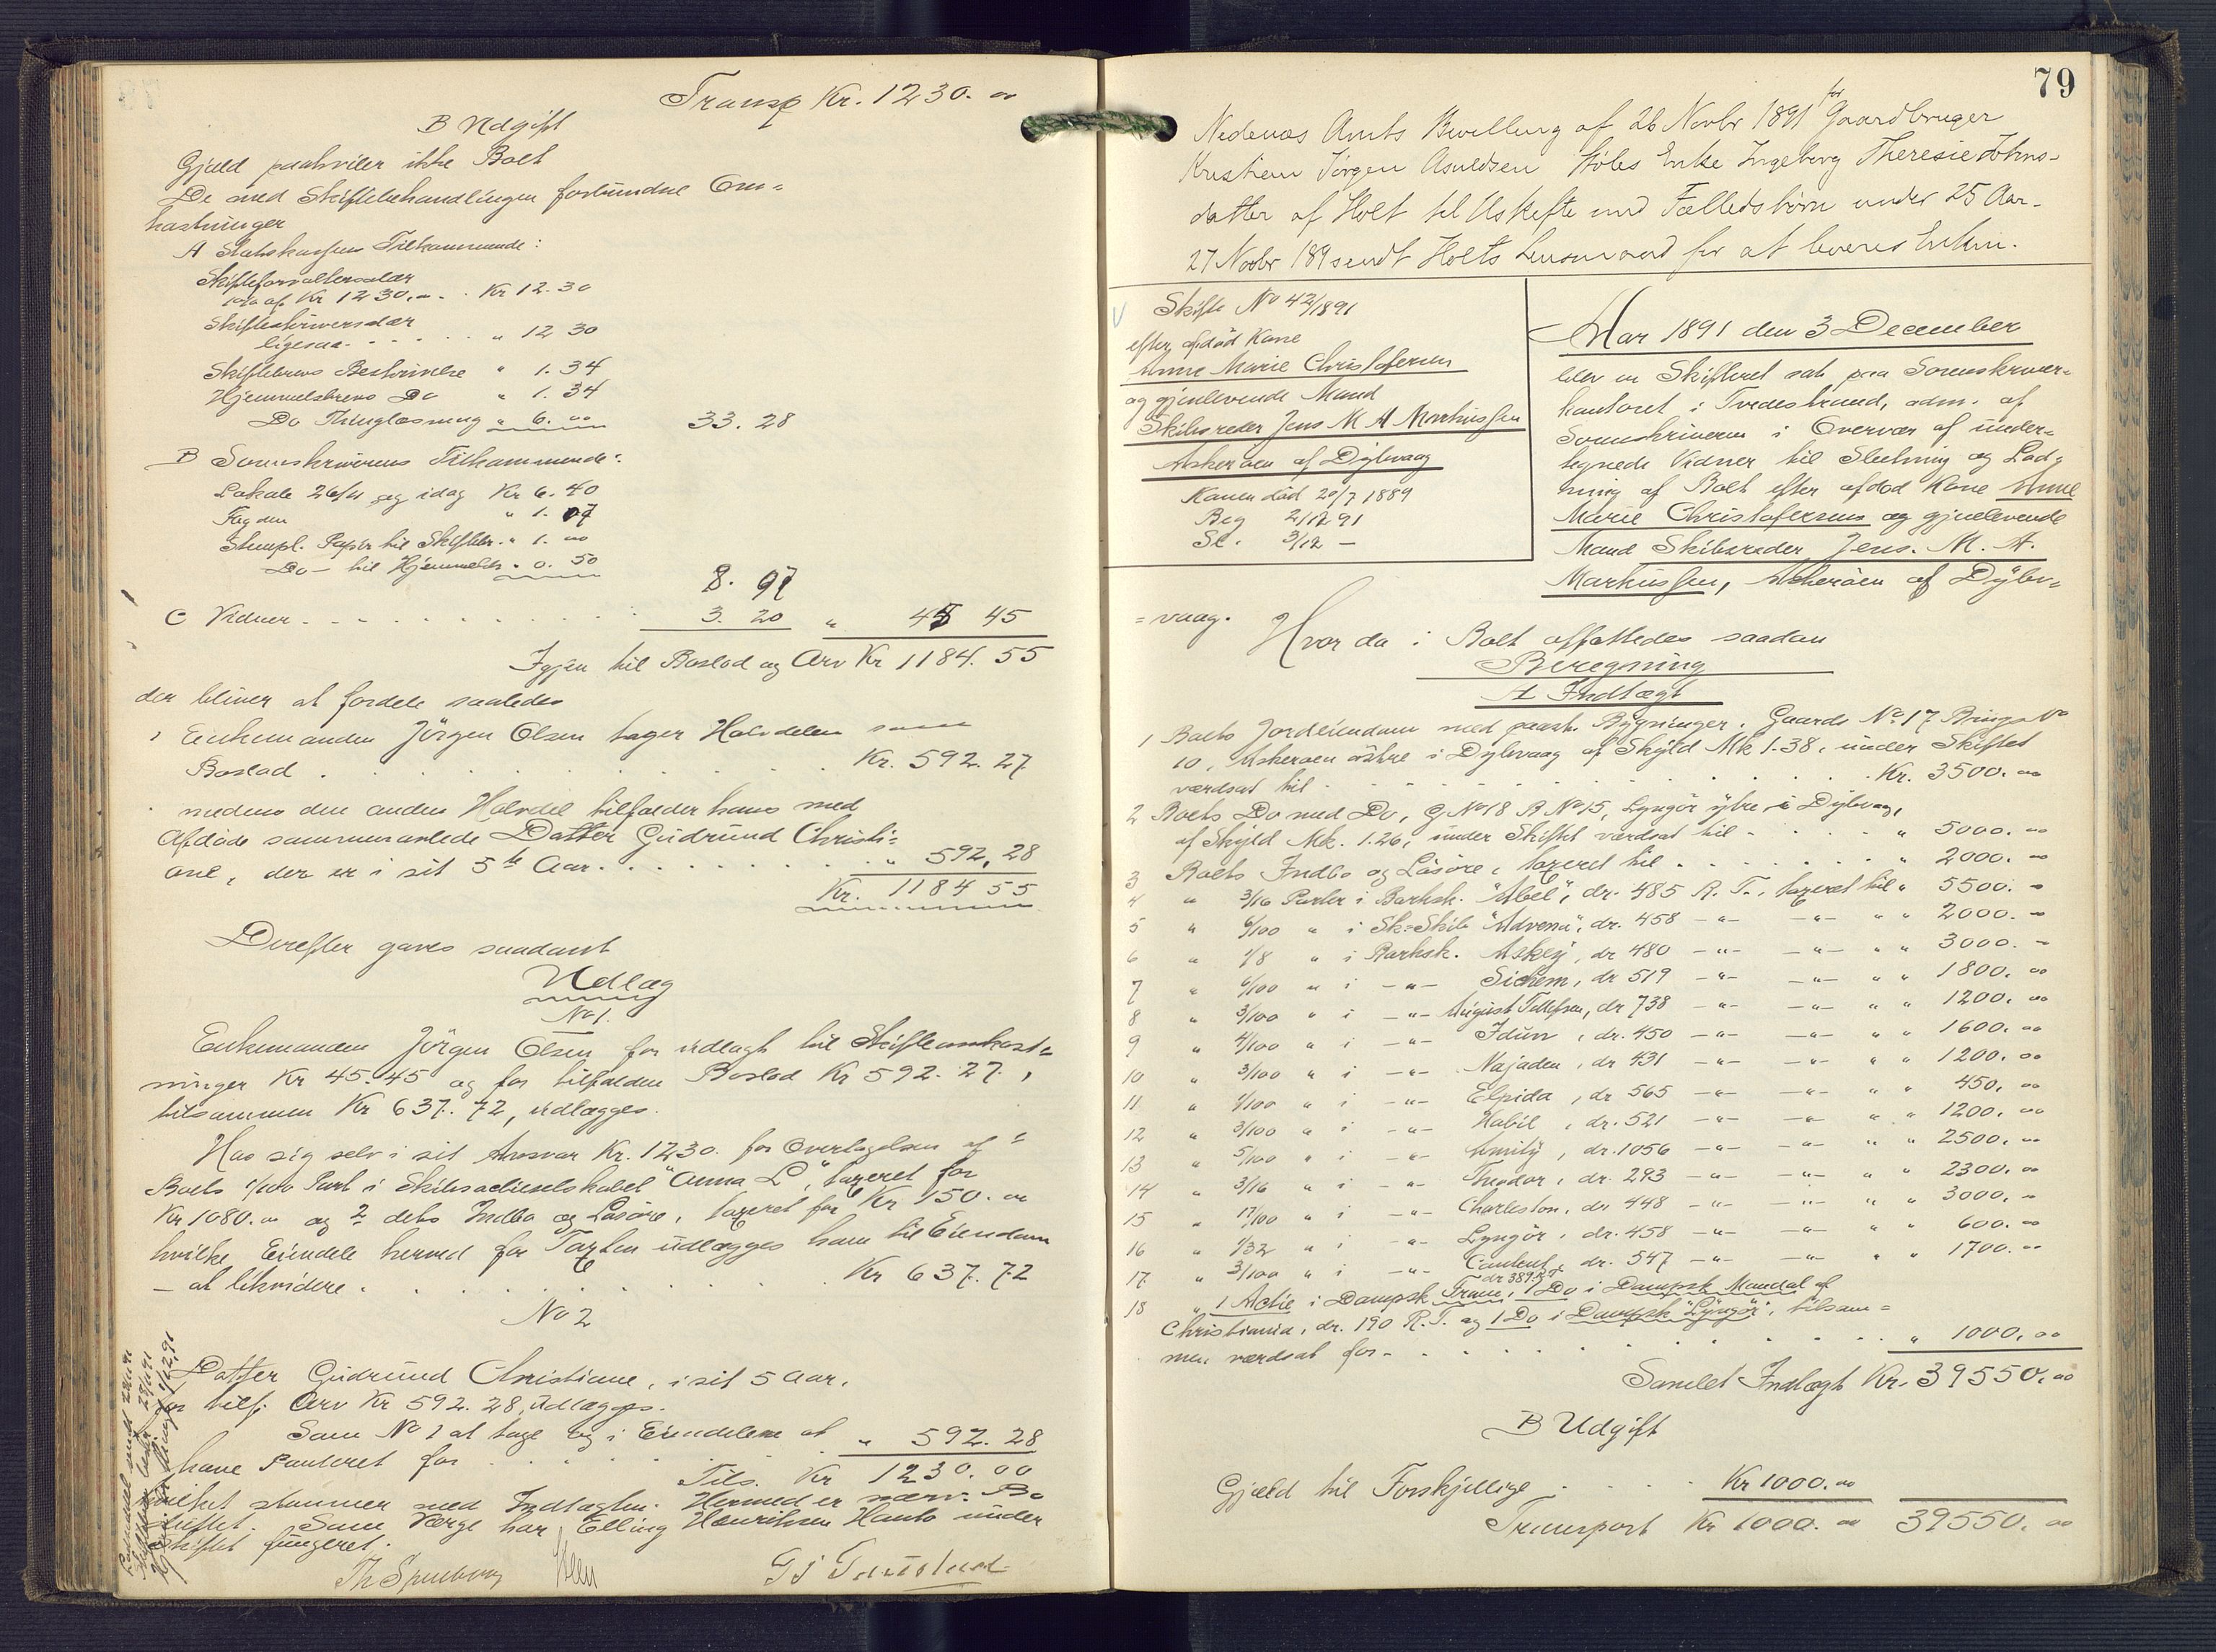 Transp Kr. 1230. 00
B Udgift
Gjæld paahviler ikke Boet
De med Skiftebehandlingen forbundne Om=
kostninger
A Statskassen Tilkommende:
Skifteforvaltersalær
1% af Kr 1230.00 . Kr 12. 30
Skifteskriversalær
ligesaa - - - - - " 12 30
Skiftebrevs Beskrivelse " 1. 34
Hjemmelsbrevs Do " 1. 34
Do Thinglæsning " 6. 00 33. 28
B Sorenskriverens Tilkommende:
Lokale 26/11 og idag Kr 6. 40
Fogden " 1. 07
Stempl. Papir til Skiftebr. " 1. 00
Do - til Hjemmelsbr. " 0. 50
8. 97
C Vidner - - - - - - - 3. 20 " 45 45
Igjen til Boslod og Arv Kr 1184. 55
der bliver at fordele saaledes
Enkemanden Jörgen Olsen tager Halvdelen som
Boslod . . . . . . . Kr. 592. 27
medens den anden Halvdel tilfalder hans med
Afdöde sammenavlede Datter Gudrund Christi=
ane, der er i sit 5te Aar. . . . . . . . " 592. 28
Kr. 1184 55
Derefter gaves saadant
Udlæg
No 1.
Enkemanden Jörgen Olsen for udlagt til Skifteomkost=
ninger Kr 45. 45 og for tilfalden Boslod Kr 592. 27,
tilsammen Kr 637. 72, udlægges.
Hos sig selv i sit Ansvar Kr. 1230. for Overtagelsen af
Boets 1/100 Part i Skibsactieselskabet "Anna L", taxeret for
Kr 1080.00 og 2 dets Indbo og Lösöre, taxeret for Kr 150. 00
hvilke Eiendele herved for Taxten udlægges ham til Eiendom
- at likvidere . . . . . . . Kr 637. 72
No 2
Datter Gudrund Christiane, i sit 5 Aar,
for tilf. Arv Kr 592. 28, udlægges.
Som No 1 at tage og i Eiendelene at
have Panteret for . . . . . " 592. 28
Tils. Kr 1230. 00
hvilket stemmer med Indtægten. Hermed er nærv. Bo
sluttet. Som Værge har Elling Henriksen Hanto under
Skiftet fungeret.
79
Nedenæs Amts Bevilling af 26 Novbr 1891 for Gaardbruger
Kristian Jörgen Asuldsen Höles Enke Ingeborg Theresie Johns-
datter af Holt til Uskifte med Fælledsbörn under 25 Aar.
27 Novbr 189 sendt Holts Lensmand for at leveres Enken.
Skifte No 42/1891
efter afdöd Kone
Anne Marie Christofersen
og gjenlevende Mand
Skibsreder Jens M A Markussen
Askeröen af Dybvaag
Konen död 20/7 1889
Beg 2/12 91
Sl. 3/12 -
Aar 1891 den 3 December
blev en Skifteret sat paa Sorenskriver=
kontoret i Tvedestrand, adm. af
Sorenskriveren i Overvær af under=
tegnede Vidner til Slutning og Lad=
ning af Boet efter afdöd Kone Anne
Marie Christofersen og gjenlevende
Mand Skibsreder Jens. M. A.
Markussen, Askeröen af Dybv=
=vaag.
Hvor da i Boet affattedes saadan
Beregning
A Indtægt
1 Boets Jordeiendom med paast. Bygninger, Gaards No 17 Brugs No
10, Askeroen östre i Dybvaag af Skyld Mk 1.38, under Skiftet
værdsat til . . . . . . . Kr. 3500. 00
2 Boets Do med Do, G No 18 B No 15, Lyngör ytre i Dybvaag,
af Skyld Mk. 1.26, under Skiftet værdsat til - . . . " 5000. 00
3 Boets Indbo og Lösöre, taxeret til . . . . . . " 2000. 00
4 " 3/16 Parter i Barksk. "Abel", dr. 485 R. T., taxeret til " 5500. "
5 " 6/100 " i Sk=Skib "Advena", dr. 458 -"- -"- " " 2000. "
6 " 1/8 " i Barksk. Askey, dr 480 -"- -"- " " 3000. "
7 " 6/100 " i -"- Sichem, dr 519 -"- -"- " " 1800. 00
8 " 3/100 " i -"- August Tellefsen, dr 738 -"- -"- " " 1200. 00
9 " 4/100 " i -"- Idun, dr. 450 -"- -"- " " 1600. 00
10 " 3/100 " i -"- Najaden, dr 431 -"- -"- " " 1200. 00
11 " 1/100 " i -"- Elpida, dr 565 -"- -"- " " 450. 00
12 " 3/100 " i -"- Habil, dr. 521 -"- -"- " " 1200. 00
13 " 5/100 " i -"- Amity, dr. 1056 -"- -"- " " 2500. 00
14 " 3/16 " i -"- Theodor, dr. 293 -"- -"- " " 2300. 00
15 " 17/100 " i -"- Charleston, dr 448 -"- -"- " " 3000. "
16 " 1/32 " i -"- Lyngör, dr. 458 -"- -"- " " 600. 00
17 " 3/100 " i -"- Content, dr. 547 -"- -"- " " 1700. 00
18 " 1 Actie i Dampsk Fram, dr 389 RT, 1 Do i Dampsk Mandal af
Christiania, dr. 190 R. T. og 1 Do i Dampsk "Lyngör", tilsam=
men værdsat for - . . . . . . . " 1000. 00
Samlet Indtægt Kr. 39550. 00
B Udgift
Gjæld til Forskjellige . . . Kr 1000. 00
Transport Kr 1000. 00 39550. 00